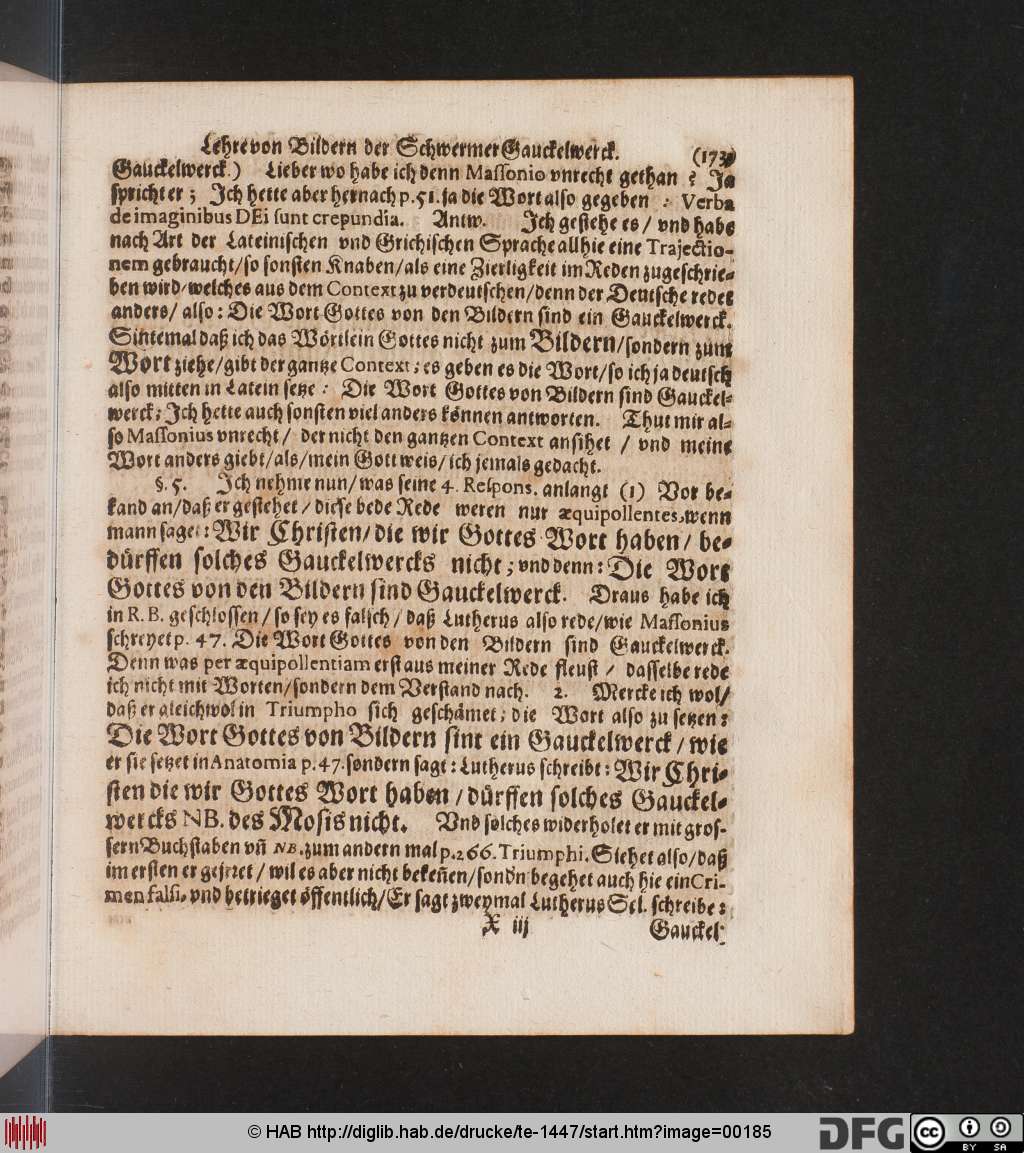 Lehre von Bildern der Schwermer Gauckelwerck. (173)
Gauckelwerck.) Lieber wo habe ich denn Massonio vnrecht gethan? Ja
spricht er; Ich hette aber hernach p. 51. ja die Wort also gegeben: Verba
de imaginibus DEi sunt crepundia. Antw. Ich gestehe es / vnd habe
nach Art der Lateinischen vnd Grichischen Sprache allhie eine Trajectio-
nem gebraucht/so sonsten Knaben/als eine Zierligkeit im Reden zugeschrie-
ben wird/welches aus dem Context zu verdeutschen/denn der Deutsche redet
anders/ also: Die Wort Gottes von den Bildern sind ein Gauckelwerck.
Sintemal daß ich das Wörtlein Gottes nicht zum Bildern/sondern zum
Wort ziehe/gibt der gantze Context; es geben es die Wort/so ich ja deutsch
also mitten in Latein setze: Die Wort Gottes von Bildern sind Gauckel-
werck; Ich hette auch sonsten viel anders können antworten. Thut mir al-
so Massonius vnrecht/ der nicht den gantzen Context ansihet / vnd meine
Wort anders giebt/als/mein Gott weis/ich jemals gedacht.
§. 5. Ich nehme nun/was seine 4. Respons. anlangt (1) Vor be-
kand an/daß er gestehet/diese bede Rede weren nur æquipollentes, wenn
mann saget: Wir Christen/die wir Gottes Wort haben/ be-
dürffen solches Gauckelwercks nicht; vnd denn: Die Wort
Gottes von den Bildern sind Gauckelwerck. Draus habe ich
in R. B. geschlossen/so sey es falsch/daß Lutherus also rede/wie Massonius
schreyet p. 47. Die Wort Gottes von den Bildern sind Gauckelwerck.
Denn was per æquipollentiam erst aus meiner Rede fleust / dasselbe rede
ich nicht mit Worten/sondern dem Verstand nach. 2. Mercke ich wol/
daß er gleichwol in Triumpho sich geschämet; die Wort also zu setzen:
Die Wort Gottes von Bildern sint ein Gauckelwerck/wie
er sie setzet in Anatomia p. 47. sondern sagt: Lutherus schreibt: Wir Chri-
sten die wir Gottes Wort haben/dürffen solches Gauckel-
wercks NB. des Mosis nicht. Vnd solches widerholet er mit gros-
sern Buchstaben vñ NB. zum andern mal p. 266. Triumphi. Siehet also/daß
im ersten er geirret/wil es aber nicht bekeñen/sondn begehet auch hie ein Cri-
men falsi, vnd betrieget öffentlich/Er sagt zweymal Lutherus Sel. schreibe:
X iij Gauckel-
© HAB http://diglib.hab.de/drucke/te-1447/start.htm?image=00185
DFG
cc BY SA